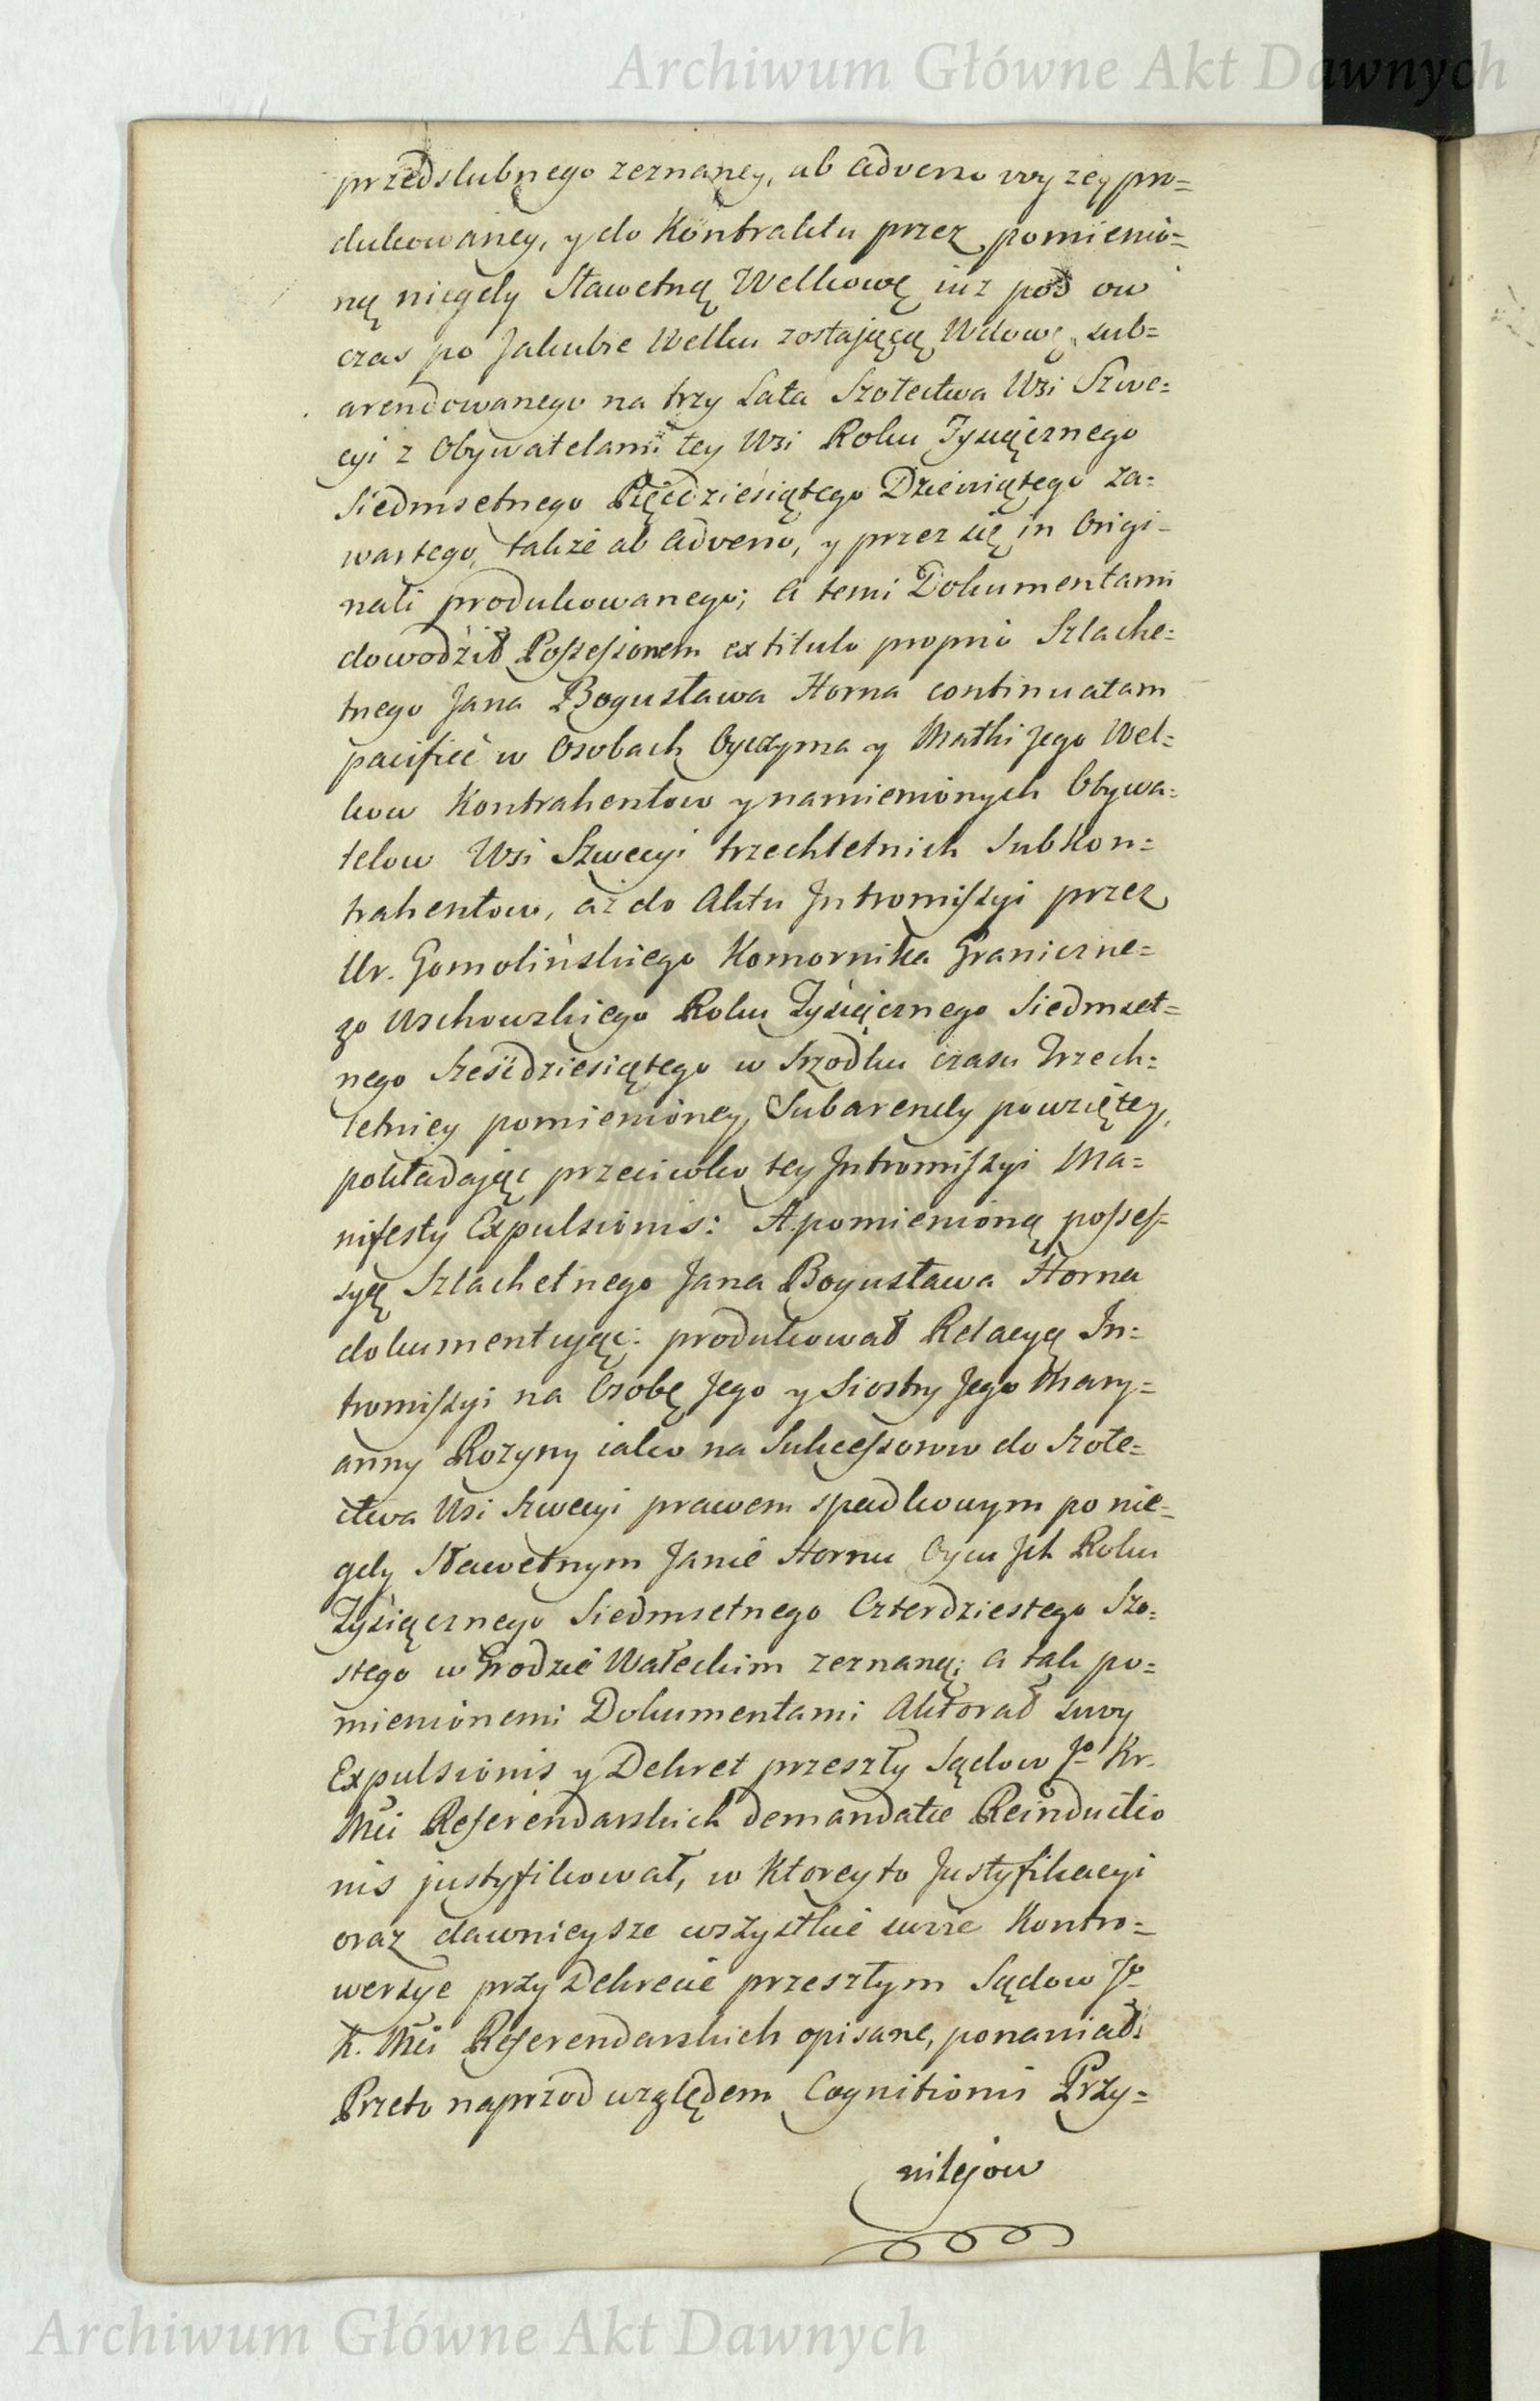 Archiwum Główne Akt Dawnych
przedslubnego zeznaney, ab adverso wyzey pro=
dukowaney, y do Kontraktu przez pomienio=
ną niegdy Sławetną Welkową iuz pod ow
czas po Jakubie Welku zostającą Wdowę, sub=
arendowanego na trzy Lata Szołectwa Wsi Szwe=
cyi z Obywatelami tey Wsi Roku Tysiącznego
Siedmsetnego Pięćdziesiątego Dziewiątego za=
wartego, takze ab adverso, y przez się in Origi=
nali produkowanego; a temi Dokumentami
dowodził Possessionem ex titulo proprio Szlache=
tnego Jana Bogusława Horna continuatam
pacifice w Osobach Oyczyma y Matki Jego Wel=
kow Kontrahentow y namienionych Obywa=
telow Wsi Szwecyi trzechletnich Subkon=
trahentow, aż do Aktu Intromissyi przez
Ur. Gomolińskiego Komornika Graniczne=
go Wschowskiego Roku Tysiącznego Siedmset=
nego Sześćdziesiątego w Srzodku czasu Trzech=
letniey pomienioney Subarendy powziętey,
pokładając przeciwko tey Intromissyi Ma=
nifesty Expulsionis: A pomienioną posses=
syą Szlachetnego Jana Bogusława Horna
dokumentując: produkował Relacyą In=
tromissyi na Osobę Jego y Siostry Jego Mary=
anny Rozyny iako na Sukcessorow do Szołe=
ctwa Wsi Szwecyi prawem spadkowym po nie=
gdy Sławetnym Janie Hornu Oycu Ich Roku
Tysiącznego Siedmsetnego Czterdziestego Szo=
stego w Grodzie Wałeckim zeznaną; a tak po=
mienionemi Dokumentami Aktorat swoy
Expulsionis y Dekret przeszły Sądow Jo Kr.
Mci Referendarskich demandatae Reinductio
nis justyfikował, w Ktorey to Justyfikacyi
oraz dawnieysze wszystkie swoie Kontro=
wersye przy Dekrecie przeszłym Sądow Jo
K. Mci Referendarskich opisane, ponawiał.
Przeto naprzod względem Cognitionis Przy=
wilejow
Archiwum Główne Akt Dawnych